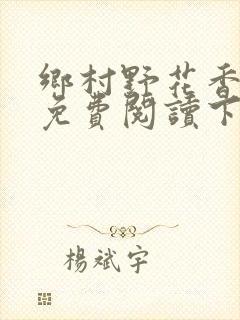 鄉村野花香
免費閱讀下
楊斌宇